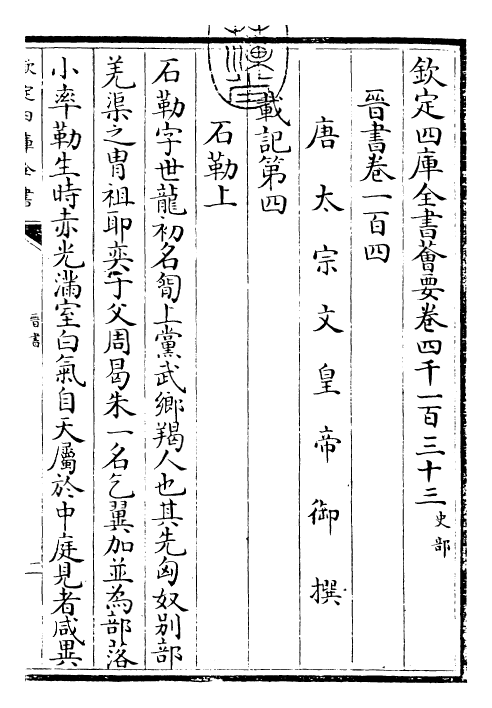 欽定四庫全書薈要卷四千一百三十三 史部
晉書卷一百四
唐太宗文皇帝御撰
載記第四
石勒上
石勒字世龍初名㔨上黨武鄉羯人也其先匈奴别部
羌渠之胄祖耶奕于父周曷朱一名乞翼加並為部落
小率勒生時赤光滿室白氣自天屬於中庭見者咸異
欽定四庫全書
晉書